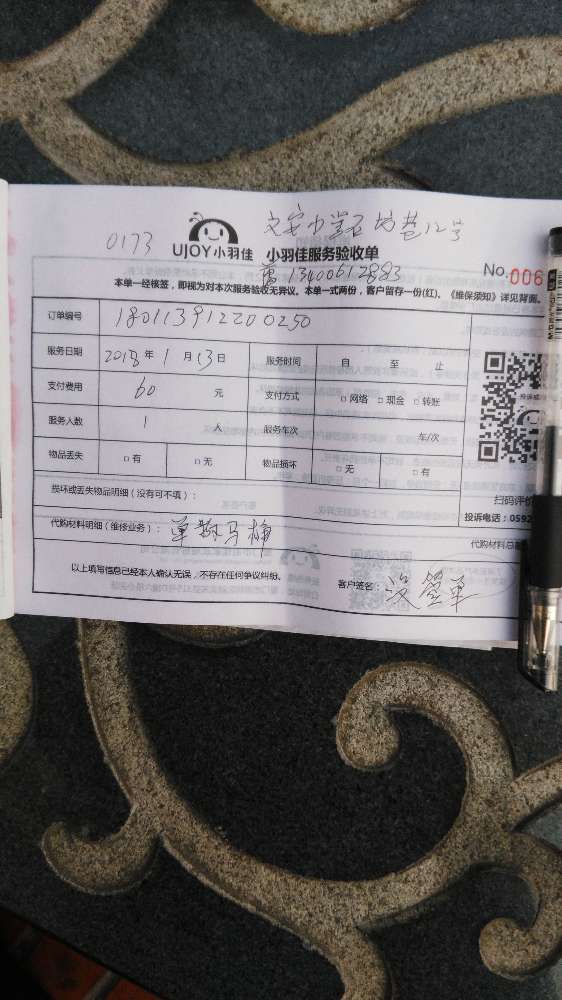 文安小学石坊巷12号
0173
UJOY小羽佳 小羽佳服务验收单
13400612883
No.006
本单一经核签，即视为对本次服务验收无异议。本单一式两份，客户留存一份(红)。《维保须知》详见背面。
订单编号 180113912200250
服务日期 2018年1月13日 服务时间 自 至 止
支付费用 60 元 支付方式 □网络 □现金 □转账
服务人数 1 人 服务车次 车/次
物品丢失 □有 □无 物品损坏 □无 □有
扫码评价
损坏或丢失物品明细（没有可不填）：
投诉电话：0592
代购材料明细（维修业务）： 单 马桶
代购材料总
以上填写信息已经本人确认无误，不存在任何争议纠纷。 客户签名： 没签单